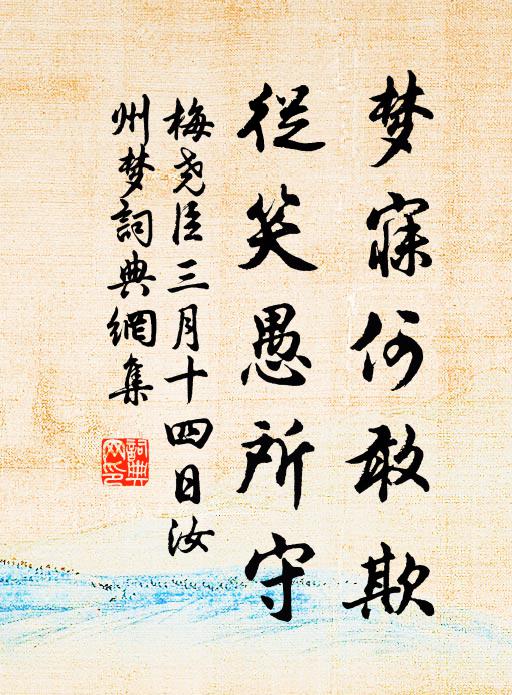 梦寐何敢欺
従笑愚所守
梅尧臣三月十四日汝
州梦詞典網集
詞典
网印